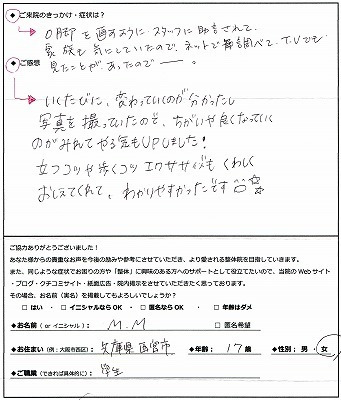 ◆ご来院のきっかけ・症状は？
O脚を直すように スタッフに助言されて、
家族も気にしていたので、ネットで調べて、T.Vでも
見たことがあったので——。
◆ご感想
いくたびに、変わっていくのが分かったし
写真を撮っていたので、ちがいや良くなっていく
のがみれてやる気もUPしました！
立つコツや歩くコツ エクササイズも くわしく
おしえてくれて、わかりやすかったです
ご協力ありがとうございました！
あなた様からの貴重なお声を今後の励みや参考にさせていただき、より愛される整体院を目指していきます。
また、同じような症状でお困りの方や「整体」に興味のある方へのサポートとして役立てたいので、当院のWebサイト
・ブログ・クチコミサイト・紙面広告・院内掲示をさせていただきたく思っております。
その場合、お名前（実名）を掲載してもよろしいでしょうか？
□ はい ・ □ イニシャルなら OK ・ □ 匿名なら OK ・ □ 年齢はダメ
◆お名前（or イニシャル）： M.M □ 匿名希望
◆お住まい（例：大阪市西区）： 兵庫県西宮市 ◆年齢： 17歳 ◆性別： 男 ・ 女
◆ご職業（できれば具体的に）： 学生